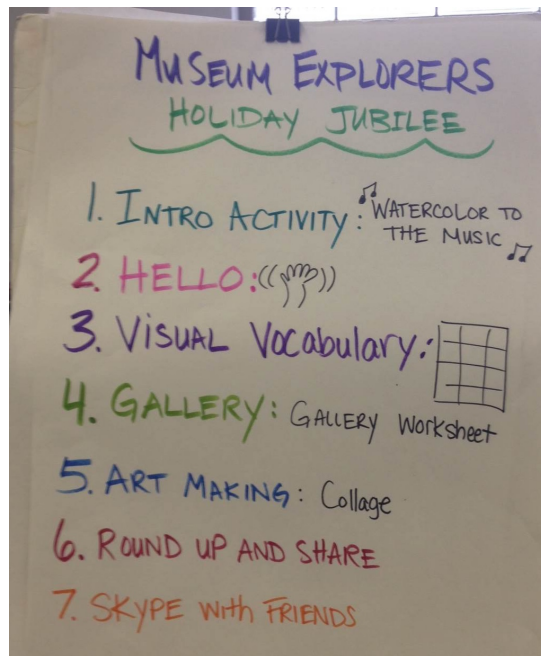 MUSEUM EXPLORERS
HOLIDAY JUBILEE
1. INTRO ACTIVITY: WATERCOLOR TO
THE MUSIC
2. HELLO:
3. VISUAL Vocabulary:
4. GALLERY: GALLERY Worksheet
5. ART MAKING: Collage
6. ROUND UP AND SHARE
7. SKYPE with FRIENDS